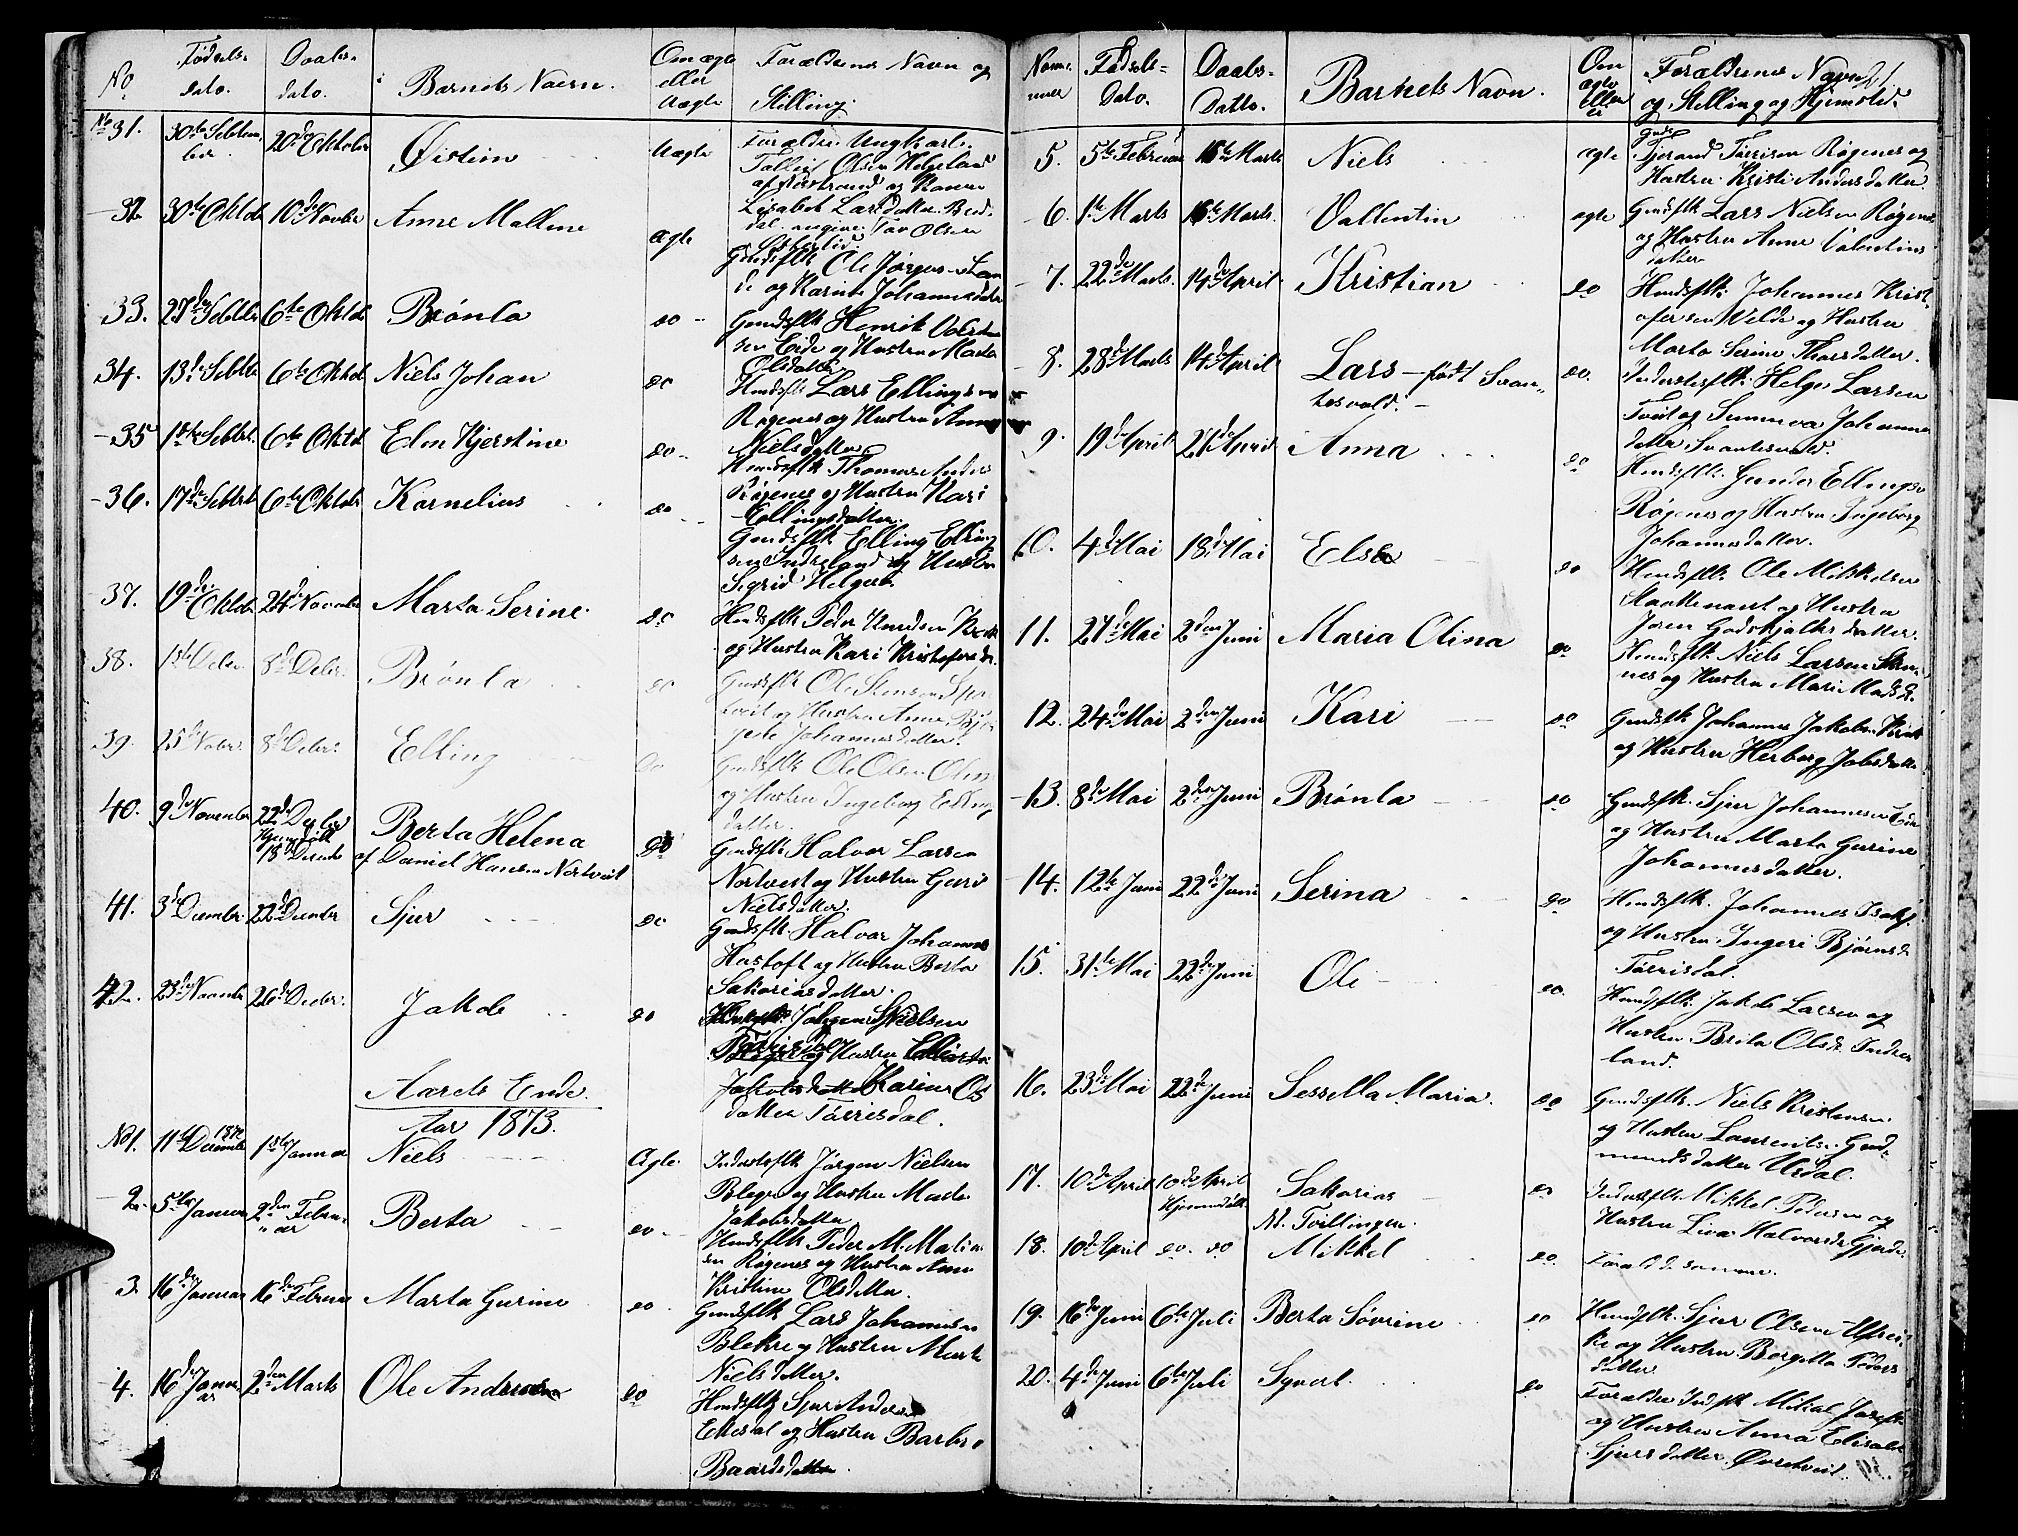 No
Fødsels-
dato.
Daabs-
dato.
Barnets Navn.
Om ægte
eller
uægte
Forældrenes Navn og
Stilling.
No 31.
30te Septem
ber.
20de Oktober
Øistein
Uægte
Forældre: Ungkarl.
Olsen Helgeland
og
Lisabet Larsdatter
Olsen
32
30te Oktbr
10de Novbr
Anne Malline
Ægte
Gmdsflk Ole
og Karin Johannesdatr
33.
27de Septbr
6te Oktob
Brønla
do
Gmdsflk Henrik
sen Eide og Hustru Marta
Olsdatter
34.
13de Septbr
6te Oktob
Niels Johan
do
Hmdsflk Lars Ellingsen
Røgenes og Hustru Anna
Nielsdatter
35
6te Oktb
Elen Kjerstine
do
Hmdsflk Thomas Anders
Røgenes og Hustru Kari
Ellingsdatter.
36.
17de Septbr
6te Oktobr
Kornelius
do
Gmdsflk Elling Elling
sen Indreland og Hustru
Sigrid Helges
37.
19de Oktbr
24de Novembr
Marta Serine.
do
Hmdsflk Peder Knudsen
og Hustru Kari Kristofersdr.
38.
1ste Debr
8de Debr.
Brønla
do
Gmdsflk Ole
og Hustru Anna
Johannesdatter.
39.
25de Nobr.
8de Debr
Elling
do
Gmdsflk Ole Olsen
og Hustru Ingeborg Elling
datter.
40.
9de Novembr
22de Decbr
Hjemdøbt
18 Decembr
Berta Helena
af Daniel Hansen Nortveit
do
Gmdsflk Halvor Larsen
Nortveit og Hustru Guri
Nielsdatter.
41.
3de Decembr
22de December
Sjur
do
Gmdsflk. Halvor Johannes
Hustoft og Hustru Berta
Sakariasdatter.
42.
23de Novembr
26de Decbr.
Jakob
do
Nielsen
og Hustru
Karine Ols
datter Tørrisdal.
Aarets Ende.
Aar 1873.
No 1.
11te December 1872
1ste Januar
Niels
Ægte.
Inderstflk Jørgen Nielsen
og Hustru
Jakobsdatter
2.
5te Januar
2den Febru-
ar
Berta
do
Hmdsflk Peder M.
Røgenes og Hustru Ane
Kristine Olsdatter.
3.
16de Januar
16de Februar
Marta Gurine
do
Gmdsflk Lars Johannesen
Blekre og Hustru Marta
Nielsdatter.
4.
16de Janu
ar
2den Marts
Ole Andreas
do
Hmdsflk Sjur Andersen
og Hustru Barbro
Baardsdatter.
Num-
mer
Fødsels-
Dato.
Daabs-
Datto.
Barnets Navn.
Om
ægte
eller
ei
Forældrenes Navn
og Stilling og Hjemsted.
5.
5te Februar
16te Marts
Niels
ægte
Gmds
Tjerand Tørrisen Røgenes og
Hustru Kristi Andersdatter.
6.
1ste Marts
16te Marts.
Vallentin
ægte
Gmdsflk Lars Nielsen Røgenes
og Hustru Anne Valentins
datter
7.
22de Marts
14de April
Kristian
do
Hmdsflk: Johannes Krist
ofersen Velde og Hustru
Marta Serine Thorsdatter.
8.
28de Marts
14de April
Lars - født Svan-
tesvold.
do.
Inderstflk: Helge Larsen
Tveit og Sunneva Johannes
datter Svantesvold.
9.
19de April
27de April
Anna
do
Hmdsflk: Gunder Ellings
Røgenes og Hustru Ingeborg
Johannesdatter.
10.
4de Mai
18de Mai
Else
do
Hmdsflk: Ole Mikkelsen
og Hustru
Joren Godskjalksdatter.
11.
27de Mai
2den Juni
Maria Olina
do
Hmdsflk Niels Larsen
nes og Hustru Mari Madsd.
12.
24de Mai
2den Juni
Kari
do
Gmdsflk Johannes Jakobsen
og Hustru Herborg Jobsdatter
13.
8de Mai
2den Juni
Brønla
do
Gmdsflk. Sjur Johannesen Eide
og Hustru Marta Gurine
Johannesdatter.
14.
12te Juni
22de Juni
Serina
do
Hmdsflk. Johannes
og Hustru Ingeri Bjørnsd
Tørrisdal.
15.
31te Mai
22de Juni
Ole
do.
Hmdsflk: Jakob Larsen og
Hustru Brita Olsd. Indre
land.
16.
23de Mai
22de Juni
Sessella Maria.
do
Gmdsflk. Niels Kristensen
og Hustru Laurentse Gud-
mundsdatter Urdal.
17.
10de April
10de April
Hjemmdøbt
Sakarias
Tvillinger.
do
Inderstflk Mikkel Pedersen og
Hustru Liva Halvorsdr
18.
10de April
do. do
Mikkel
do.
Forældre samme.
19.
16de Juni
6te Juli
Berta Søvrine
do
Hmdsflk. Sjur Olsen
og Hustru Bergitta Peders
datter
20.
4de Juni
6te Juli
Syvert.
do
Forældre Indflk Mikal
og Hustru Anna
Sjursdatter